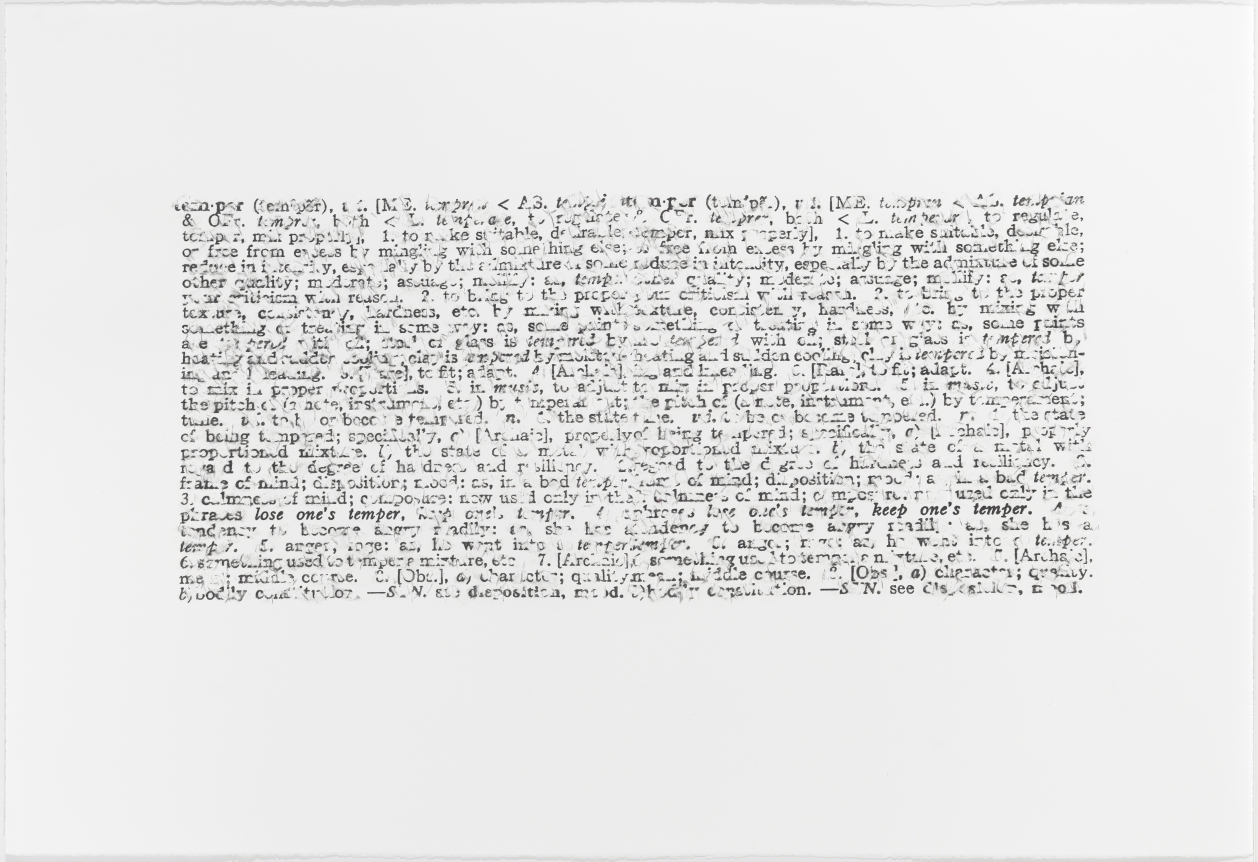 tem·per (tem'pẽr), v.t. [ME. tempren < AS. tem·per (tem'pẽr), v.t. [ME. tempren < AS. temprian
& OFr. temprer, both < L. temperare, to regulate, OFr. temprer, both < L. temperare, to regulate,
temper, mix properly], 1. to make suitable, desirable, temper, mix properly], 1. to make suitable, desirable,
or free from excess by mingling with something else; or free from excess by mingling with something else;
reduce in intensity, especially by the admixture of some reduce in intensity, especially by the admixture of some
other quality; moderate; assuage; mollify: as, temper other quality; moderate; assuage; mollify: as, temper
your criticism with reason. 2. to bring to the proper your criticism with reason. 2. to bring to the proper
texture, consistency, hardness, etc. by mixing with texture, consistency, hardness, etc. by mixing with
something or treating in some way: as, some paints something or treating in some way: as, some paints
are tempered with oil; steel or glass is tempered by tempered with oil; steel or glass is tempered by
heating and sudden cooling, clay is tempered by moisten- heating and sudden cooling, clay is tempered by moisten-
ing and kneading. 3. [Rare], to fit; adapt. 4. [Archaic], ing and kneading. 3. [Rare], to fit; adapt. 4. [Archaic],
to mix in proper proportions. 5. in music, to adjust to mix in proper proportions. 5. in music, to adjust
the pitch of (a note, instrument, etc.) by temperament; the pitch of (a note, instrument, etc.) by temperament;
tune. v.i. to be or become tempered. n. 1. the state tune. v.i. to be or become tempered. n. 1. the state
of being tempered; specifically, a) [Archaic], properly of being tempered; specifically, a) [Archaic], properly
proportioned mixture. b) the state of a metal with proportioned mixture. b) the state of a metal with
regard to the degree of hardness and resiliency. 2. regard to the degree of hardness and resiliency. 2.
frame of mind; disposition; mood: as, in a bad temper. frame of mind; disposition; mood: as, in a bad temper.
3. calmness of mind; composure: now used only in the calmness of mind; composure: now used only in the
phrases lose one's temper, keep one's temper. 4. phrases lose one's temper, keep one's temper. 4. a
tendency to become angry readily: as, she has a tendency to become angry readily: as, she has a
temper. 5. anger; rage: as, he went into a temper. temper. 5. anger; rage: as, he went into a temper.
6. something used to temper a mixture, etc. 7. [Archaic], 6. something used to temper a mixture, etc. 7. [Archaic],
mean; middle course. 8. [Obs.], a) character; quality. mean; middle course. 8. [Obs.], a) character; quality.
b) bodily constitution. —SYN. see disposition, mood. b) bodily constitution. —SYN. see disposition, mood.